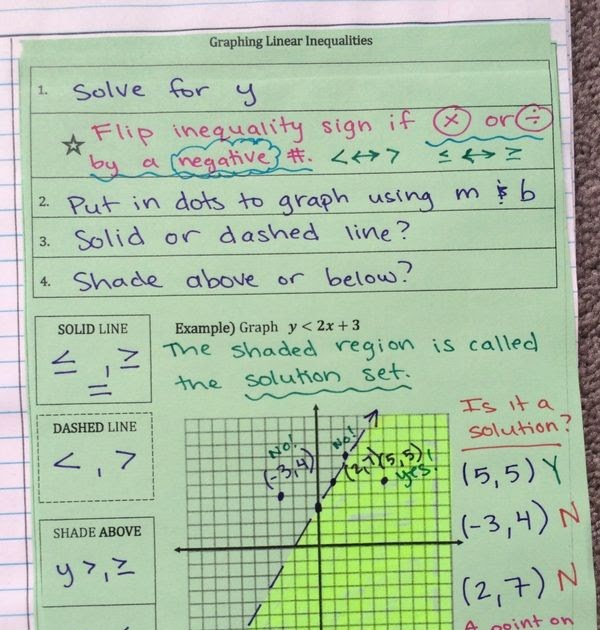 Graphing Linear Inequalities
1. Solve for y
☆ Flip inequality sign if ⓧ or ÷
by a negative #. < ↔ > ≤ ↔ ≥
2. Put in dots to graph using m & b
3. Solid or dashed line?
4. Shade above or below?
SOLID LINE
≤, ≥
=
DASHED LINE
<, >
SHADE ABOVE
y >, ≥
Example) Graph y < 2x + 3
The shaded region is called
the solution set.
No!
(-3,4)
No!
(2,7)
(5,5)
yes!
Is it a
solution?
(5,5) Y
(-3,4) N
(2,7) N
A point on